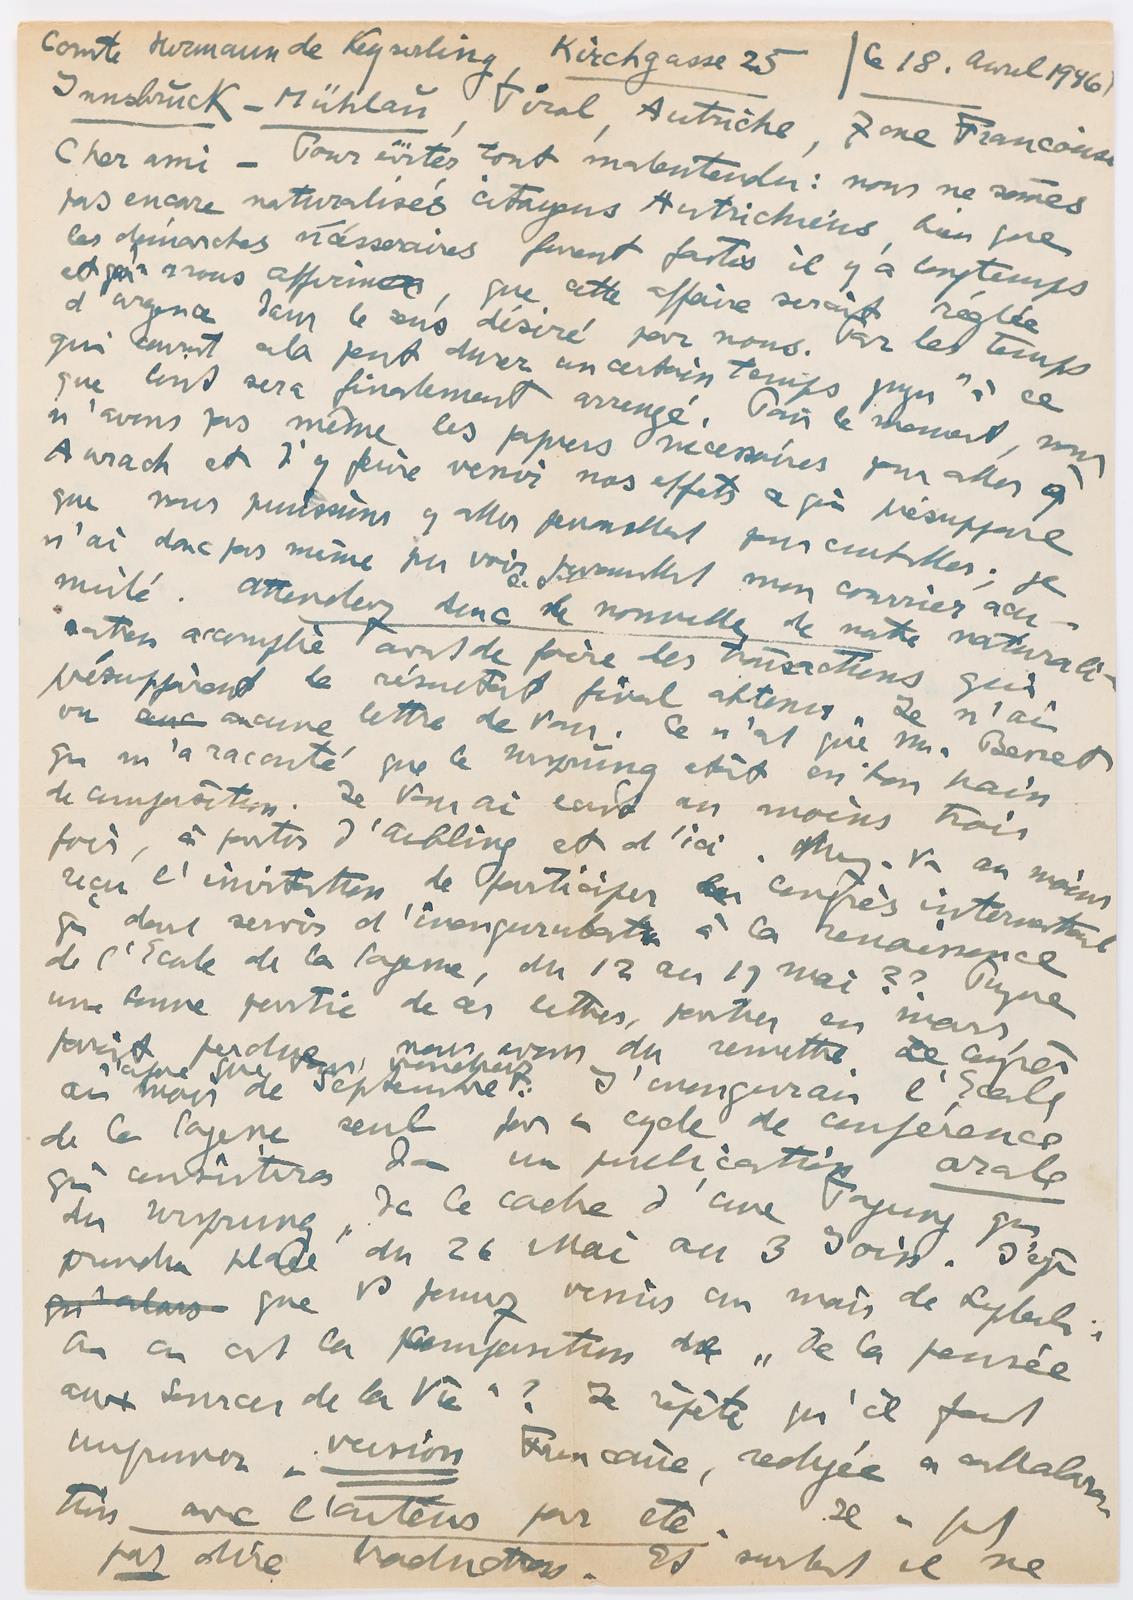 Comte Hermann de Keyserling, Kirchgasse 25 | le 18. Avril 1946
Innsbruck - Mühlau, Tirol, Autriche, Zone Francaise
Cher ami - Pour éviter tout malentendu: nous ne somes
pas encore naturalisés citoyens Autrichiens, bien que
les démarches nécessaires furent faites il y a longtemps
et qu'on nous affirma, que cette affaire serait réglée
d'urgence dans le sens désiré par nous. Par les temps
qui courent cela peut durer un certain temps jusqu'à ce
que tout sera finalement arrangé. Pour le moment, nous
n'avons pas même les papiers nécessaires pour aller à
Aurach et d'y faire venir nos effets ce qui présuppose
que nous puissions y aller personellement pour contrôler; je
n'ai donc pas même pu voir personellement mon courrier accu-
mulé. Attendez donc de nouvelles de notre naturali-
sation accomplie avant de faire des transactions qui
présupposent le résultat final obtenu. Je n'ai
vu aucune lettre de vous. Ce n'est que Mr. Benet
qui m'a raconté que le Ursprung était en bon train
de composition. Je vous ai écrit au moins trois
fois, à partir d'Aibling et d'ici. Avez-vs au moins
reçu l'invitation de participer au Congrès international
qui dout servir d'inauguration à la renaissance
de l'Ecole de la Sagesse, du 12 au 19 mai?? Puisque
une bonne partie de ces lettres, parties en mars,
parait perdue, nous avons du remettre le Congrès
au mois de Septembre. J'inaugurai l'Ecole
de la Sagesse seul par un cycle de conférence
qui consistera dans un publication orale
du Ursprung, ds le cadre d'une Tagung qui
prendra place du 26 Mai au 3 Join.
que vs pensez venir au mois de Septembre;
Ou en est la composition de „De la pensée
aux Sources de la Vie"? Je répète qu'il faut
imprimer „version Francaise, redigée en collabora-
tion avec l'auteur par été. Je ne
pas dire traduction. Et surtout il ne